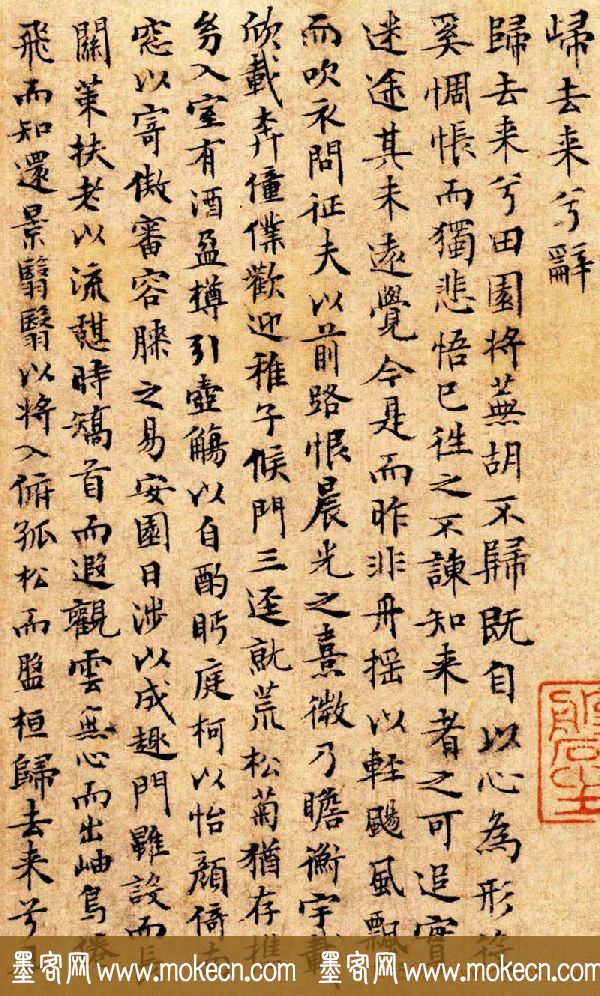 歸去来兮辭
歸去来兮田園将蕪胡不歸既自以心為形
奚惆悵而獨悲悟已往之不諫知来者之可追實
迷途其未遠覺今是而昨非舟揺以輕颺風飄
而吹衣問征夫以前路恨晨光之熹微乃瞻衡宇載
欣載奔僮僕歡迎稚子候門三逕就荒松菊猶存携
幼入室有酒盈樽引壺觴以自酌眄庭柯以怡顔倚
窓以寄傲審容膝之易安園日渉以成趣門雖設而長
關策扶老以流憩時矯首而遐觀雲無心而出岫鳥倦
飛而知還景翳翳以将入俯孤松而盤桓歸去来兮
墨客网 www.mokecn.com 墨客网 www.mokecn.com